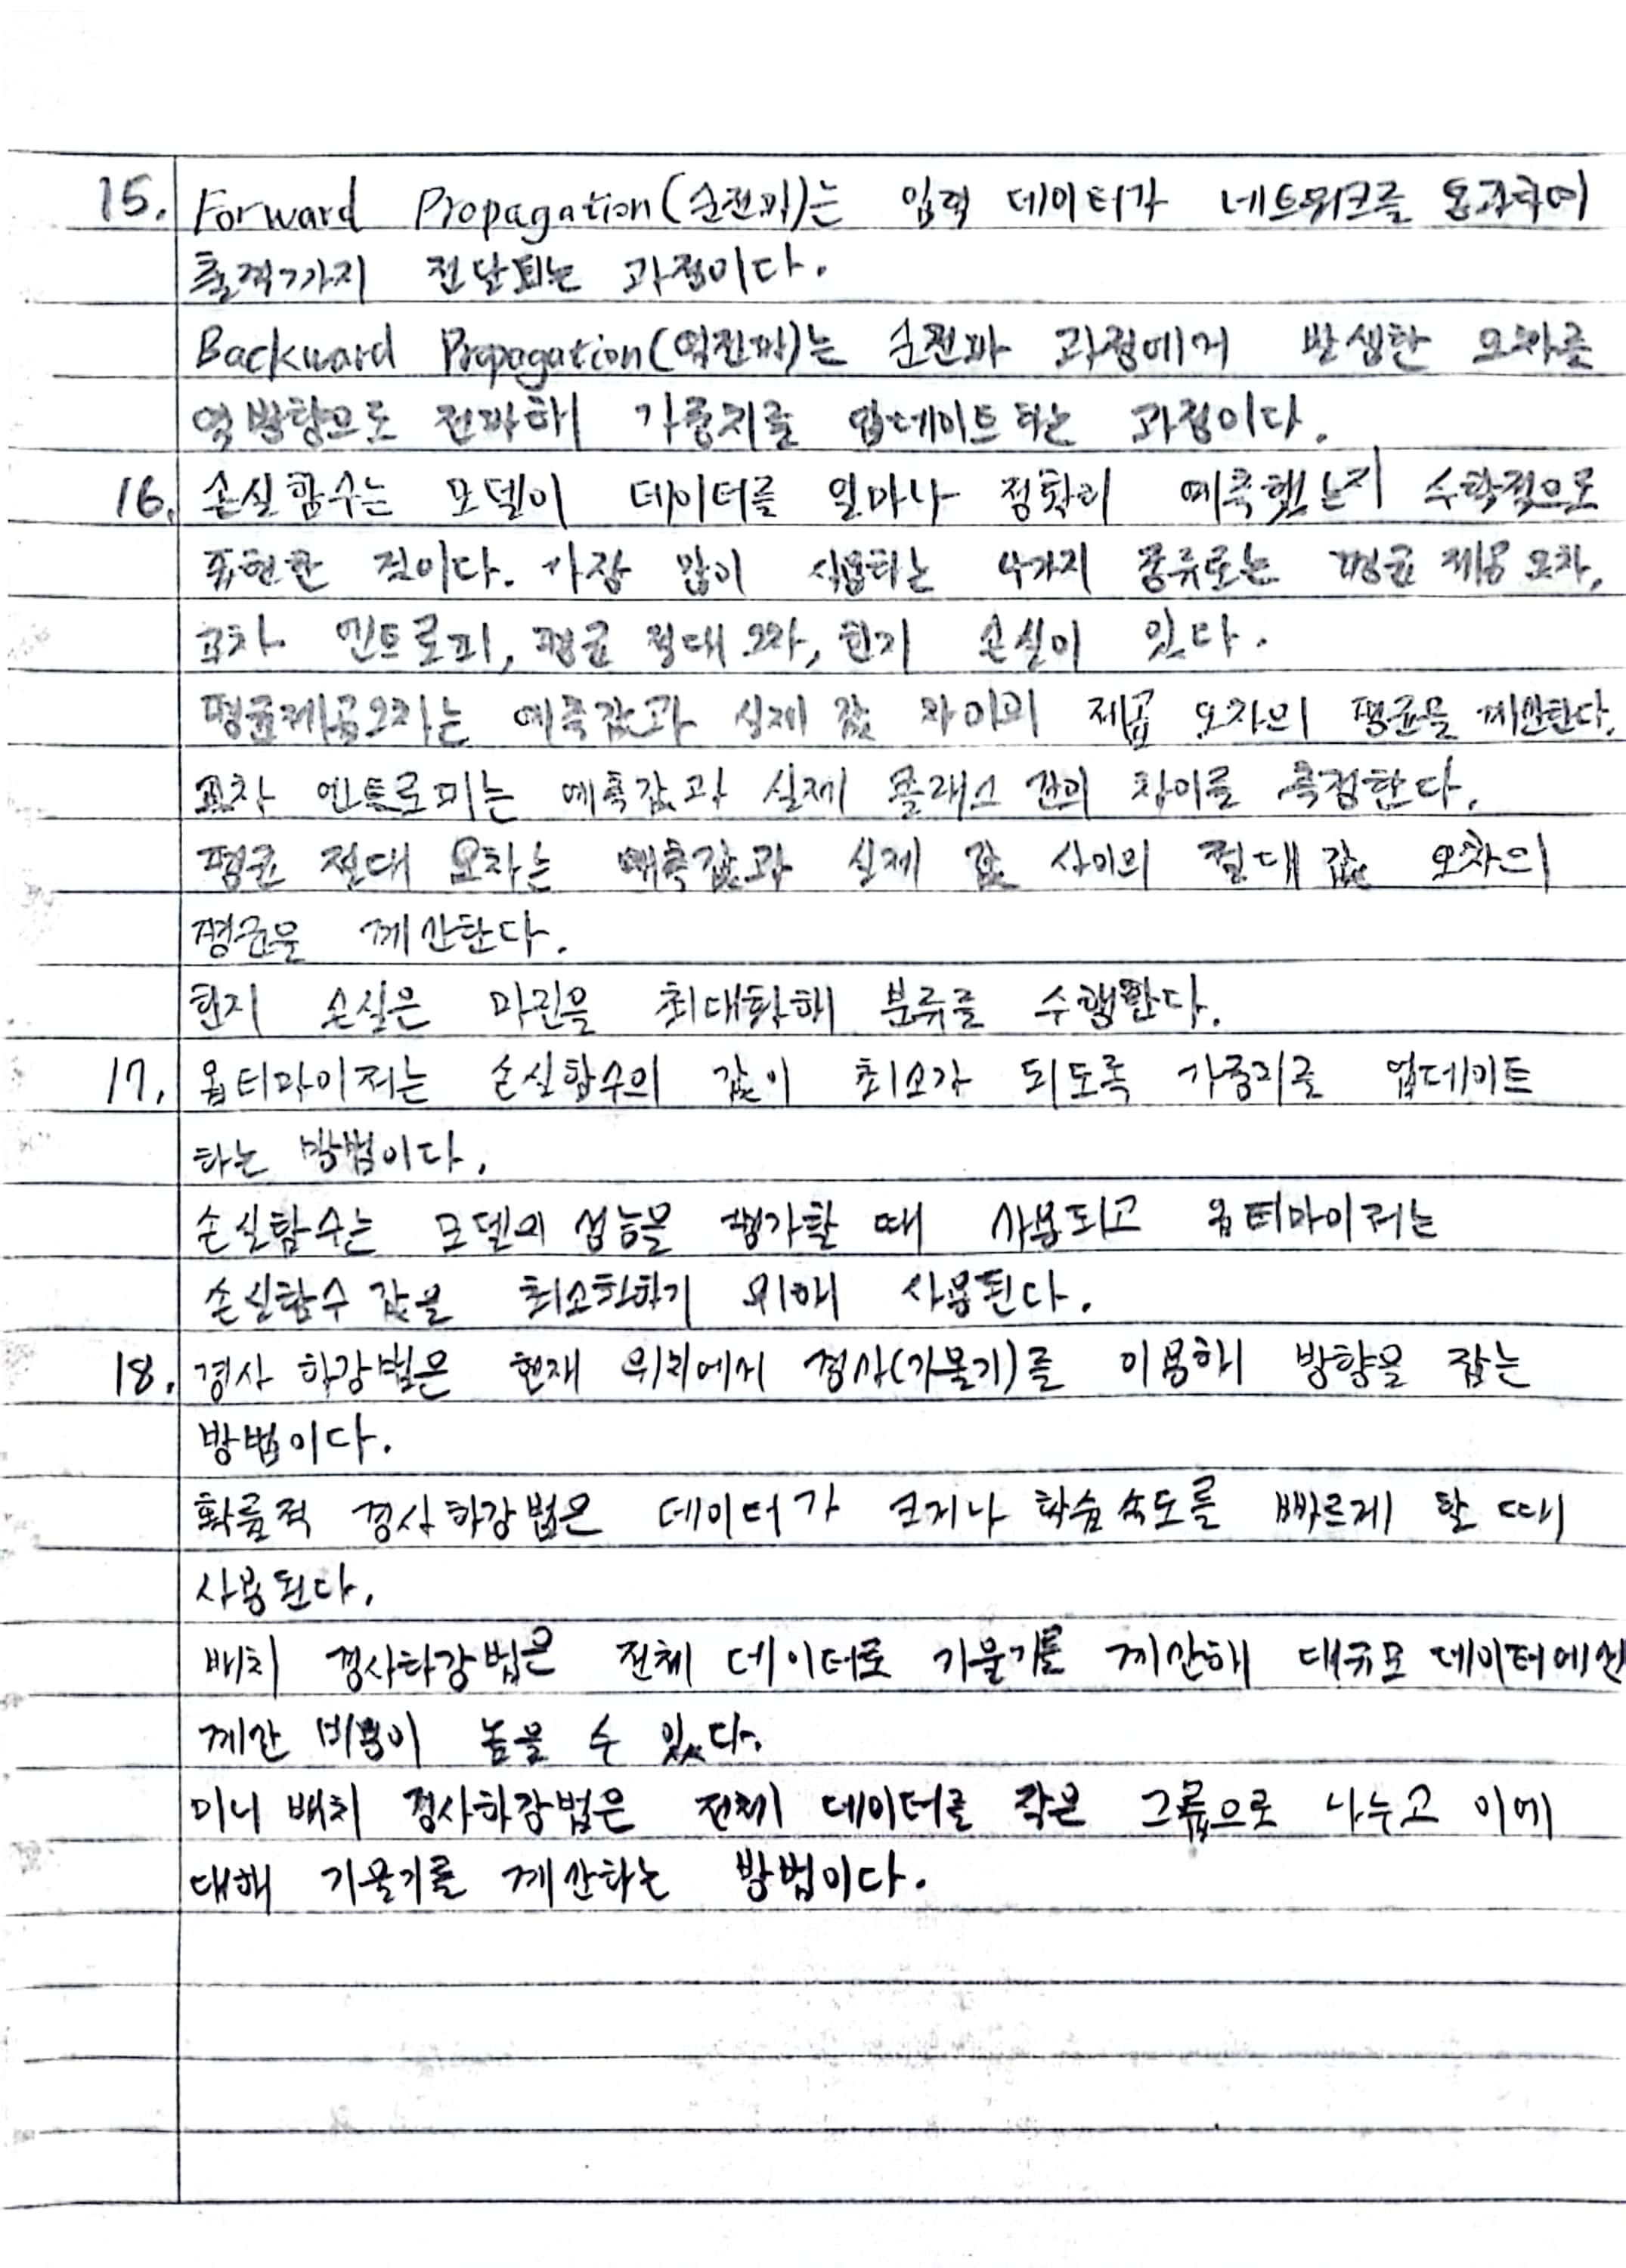 15. Forward Propagation(순전파)는 입력 데이터가 네트워크를 통과하여
출력까지 전달되는 과정이다.
Backward Propagation(역전파)는 순전파 과정에서 발생한 오차를
역방향으로 전파해 가중치를 업데이트하는 과정이다.
16. 손실함수는 모델이 데이터를 얼마나 정확히 예측했는지 수학적으로
표현한 것이다. 가장 많이 사용하는 4가지 종류로는 평균 제곱 오차,
교차 엔트로피, 평균 절대 오차, 힌지 손실이 있다.
평균제곱오차는 예측값과 실제 값 차이의 제곱 오차의 평균을 계산한다.
교차 엔트로피는 예측값과 실제 클래스 간의 차이를 측정한다.
평균 절대 오차는 예측값과 실제 값 사이의 절대값 오차의
평균을 계산한다.
힌지 손실은 마진을 최대화해 분류를 수행한다.
17. 옵티마이저는 손실함수의 값이 최소가 되도록 가중치를 업데이트
하는 방법이다.
손실함수는 모델의 성능을 평가할 때 사용되고 옵티마이저는
손실함수 값을 최소화하기 위해 사용된다.
18. 경사 하강법은 현재 위치에서 경사(기울기)를 이용해 방향을 잡는
방법이다.
확률적 경사하강법은 데이터가 크거나 학습속도를 빠르게 할 때
사용된다.
배치 경사하강법은 전체 데이터로 기울기를 계산해 대규모 데이터에선
계산 비용이 높을 수 있다.
미니 배치 경사하강법은 전체 데이터를 작은 그룹으로 나누고 이에
대해 기울기를 계산하는 방법이다.